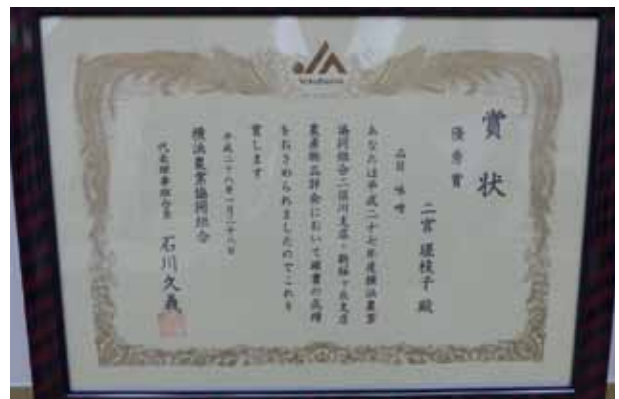 JA
Yokohama
賞状
優秀賞
二宮 瑳枝子 殿
品目 味噌
あなたは平成二十七年度横浜農業
協同組合二俣川支店・新桜ヶ丘支店
農産物品評会において頭書の成績
をおさめられましたのでこれを
賞します
平成二十八年一月二十八日
横浜農業協同組合
代表理事組合長 石川久義